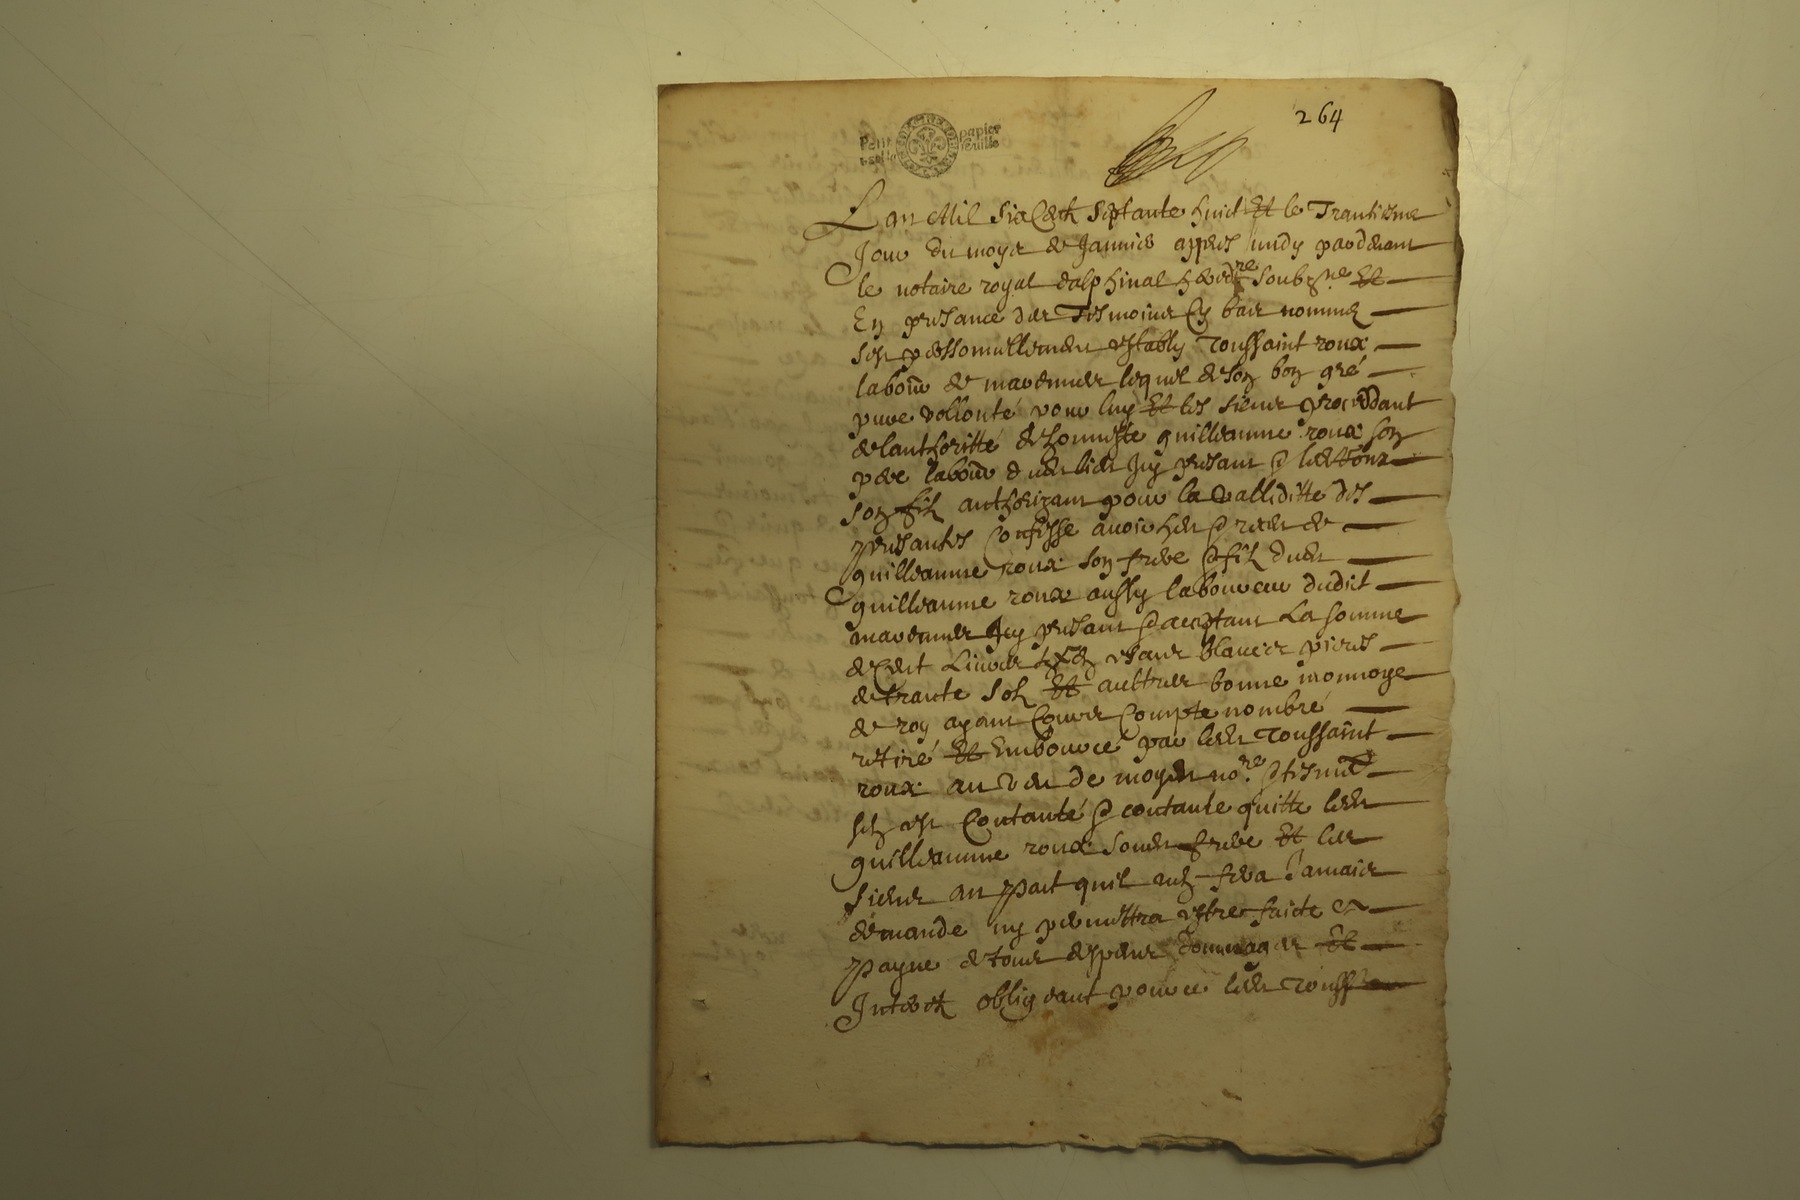 264
Petit papier
feuille
L an Mil six Centz septante huict Et le Trantiesme
Jour du moys de Janvier appres midy pardevant
le notaire royal dalphinal hered.re soubz.ne Et
En presance des Tesmoins Cy bas nommez
sest personnellement estably Toussaint roux
labour de lequel de son bon gré
pure vollonté pour luy Et les siens procedant
de lauthoritté de honneste guilleaume roux son
pere labour dud. lieu Icy presant &
son filz authorizant pour la valliditté des
presantes Confesse avoir heu & receu de
guilleaume roux son frere & filz dud.
guilleaume roux aussy laboureur dudit
Icy presant & acceptant La somme
de Cent Livres en escus blancz pieces
de trante solz Et aultres bonne monnoye
de roy ayant Cours Compte nombré
retiré Et Embourcé par led. Toussaint
roux au veu de moyd. no.re & tesmoins
sen est Contanté & contante quitte led.
guilleaume roux sond. frere Et les
siens au part quil nen fera Jamais
demande ny permettra estre faicte a
payne de tous despens dommages Et
Interestz obligeant pour ce led. Touss